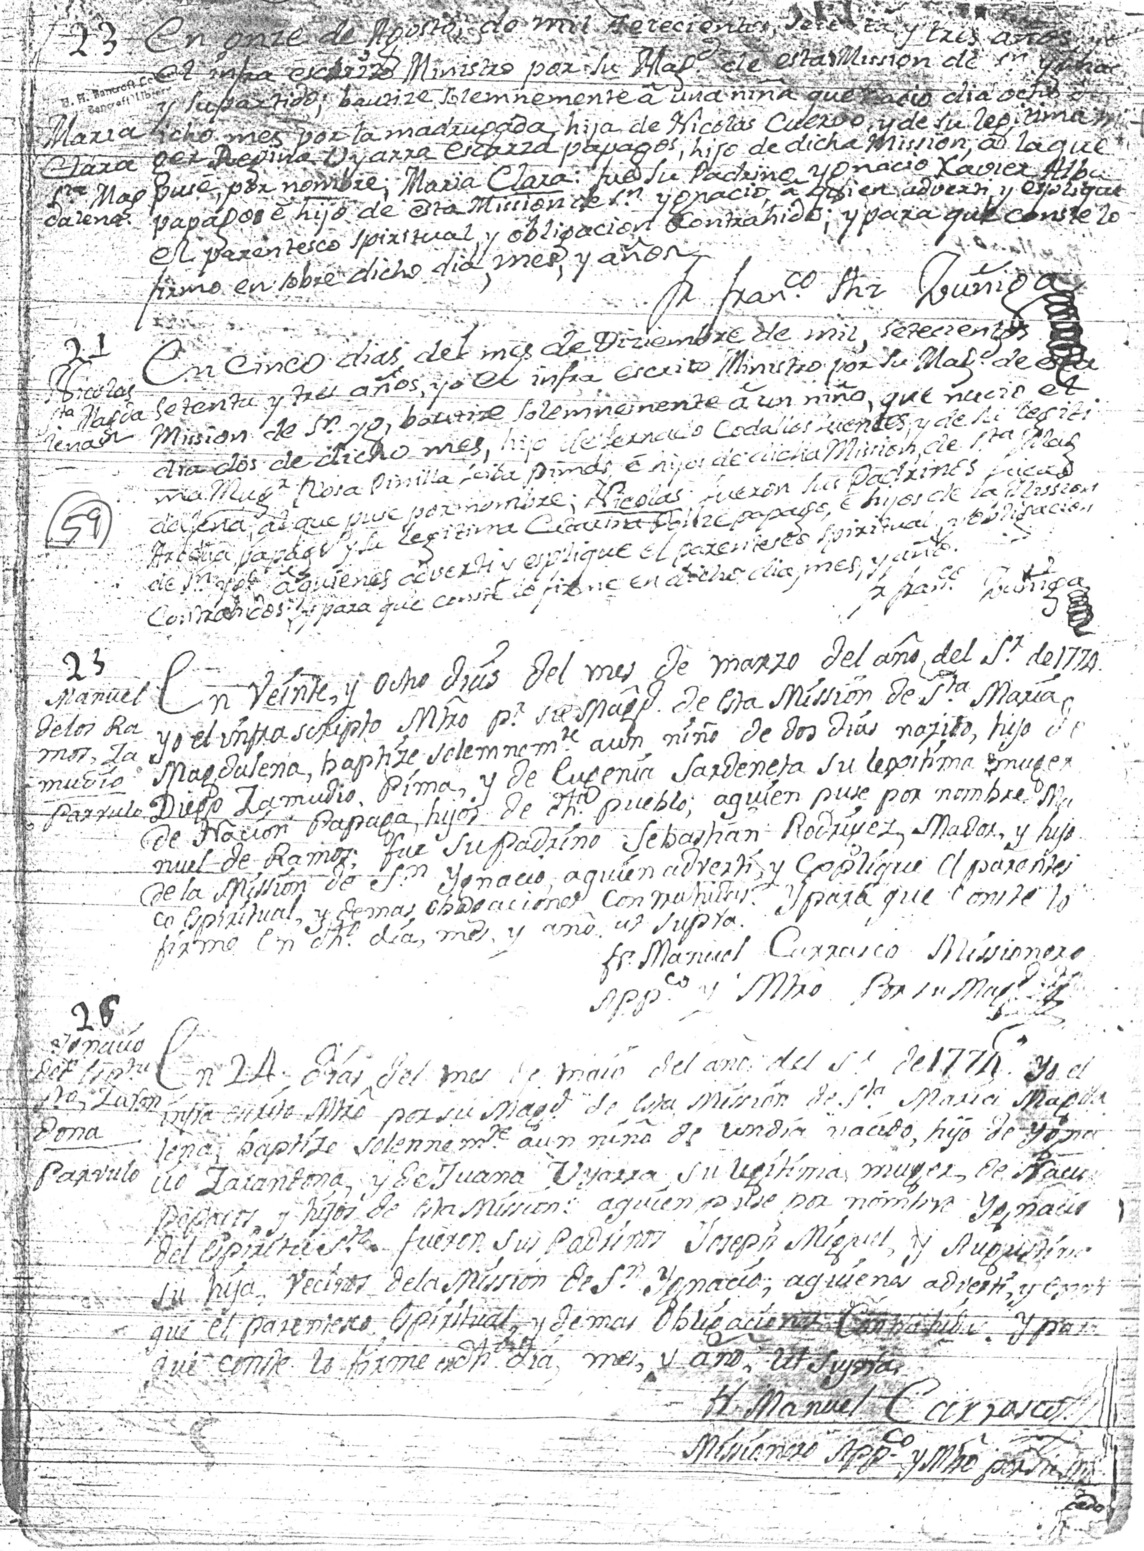 23
En onze de Agosto, de mil setecientos, setenta y tres años, yo
el infra escrito Ministro por su Magd de esta Mission de Sn Ygnac
H. H. Bancroft Co
Bancroft Library
y su partido; bautize solemnemente â una niña que nacio dia ocho
Maria
Clara
Sta Mag
dalena
dicho mes por la madrugada, hija de Nicolas Cuervo, y de su legitima
Regina Vyarra papagos, hijo de dicha Mission, â la que
puse, por nombre; Maria Clara: fue su Padrino Ygnacio Xavier
papago ê hijo de esta Mission de Sn Ygnacio, â quien adverti, y esplique
el parentesco spiritual, y obligacion contrahido; y para que conste lo
firmo en sobre dicho dia, mes, y años
fr franco Zuñiga
Nicolas
Sta Magda
lena
En cinco dias del mes de Diziembre de mil, setecientos
setenta y tres años, yo el infra escrito Ministro por su Magd de esta
Mission de Sn Yg, bautize solemnemente â un niño, que nacio el
dia dos de dicho mes, hijo de y de su legiti
ma Mugr Rosa Pinilla Pimas ê hijos de dicha Mission, de Sta Mag
dalena, al que puse por nombre; Nicolas: fueron sus Padrinos
papago y su legitima papago, ê hijos de la Mission
de Sn â quienes adverti y esplique el parentesco spiritual, y obligacion
contrahidos; y para que conste lo firme en dicho dia, mes, y año.
fr franco Zuñiga
59
25
Manuel
de los Ra
mos, Za
mudio
Parvulo
En Veinte, y ocho dias del mes de marzo del año, del Sr de 1774.
yo el infrascripto Mtro pr su Magd de esta Mission de Sta Maria
Magdalena, baptize solemnemte a un niño de dos dias nazido, hijo de
Diego Zamudio, Pima, y de Eugenia Sardeneta su legitima muger
de Nacion Papaga, hijos de dho pueblo; a quien puse por nombre Ma
nuel de Ramos; fue su Padrino Sebastian Rodriguez, Mador, y hijo
de la Mission de Sn Ygnacio, a quien adverti, y Esplique el parentes
co Espiritual, y demas obligaciones contrahidas. Y para que conste lo
firme en dho dia, mes, y año ut supra.
fr. Manuel Carrasco Missionero
Appco y Mtro Por su Magd
26
Ygnacio
del Espiritu
Sto, Zaran
dona
Parvulo
En 24 dias del mes de maio del año del Sr de 1774 Yo el
infra escrito Mtro por su Magd de esta Mission de Sta Maria Magda
lena, baptize solennemte a un niño de un dia nacido, hijo de Ygna
cio Zarandona, y de Juana Vyarra su legitima muger, de Nacion
Papagos, y hijos de esta Mission: a quien puse por nombre Ygnacio
del Espiritu Sto. fueron sus Padrinos Joseph Miguel, y Augustina
su hija, Vecinos de la Mission de Sn Ygnacio; a quienes adverti, y Espli
que el parentesco Espiritual, y demas obligaciones Contrahidas. Y para
que conste lo firme en dho dia, mes, y año, ut Supra.
fr. Manuel Carrasco
Missionero Appco y Mtro por su Mag